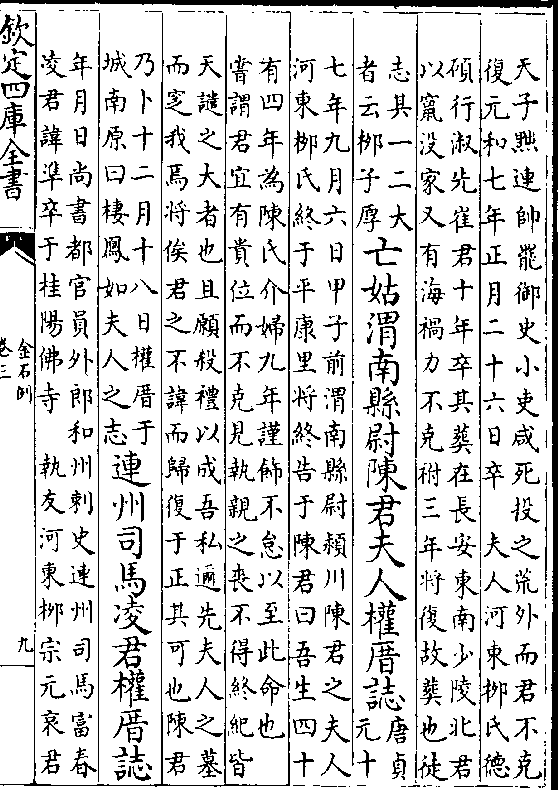 天子黜連帥罷御史小吏咸死投之荒外而君不克
復元和七年正月二十六日卒　夫人河東栁氏德
碩行淑先崔君十年卒其葬在長安東南少陵北君
以竄没家又有海禍力不克祔三年將復故葬也徒
志其一二大
者云栁子厚
亡姑渭南縣尉陳君夫人權厝誌
唐貞
元十
七年九月六日甲子前渭南縣尉潁川陳君之夫人
河東栁氏終于平康里將終告于陳君曰吾生四十
有四年為陳氏介婦九年謹飭不怠以至此命也
嘗謂君宜有貴位而不克見執親之喪不得終紀皆
天譴之大者也且願殺禮以成吾私邇先夫人之墓
而窆我焉將俟君之不諱而歸復于正其可也陳君
乃卜十二月十八日權厝于
城南原曰棲鳳如夫人之志
連州司馬凌君權厝誌
年月日尚書都官員外郎和州刺史連州司馬富春
凌君諱準卒于桂陽佛寺　執友河東栁宗元哀君
欽定四庫全書
金石例
卷三
九